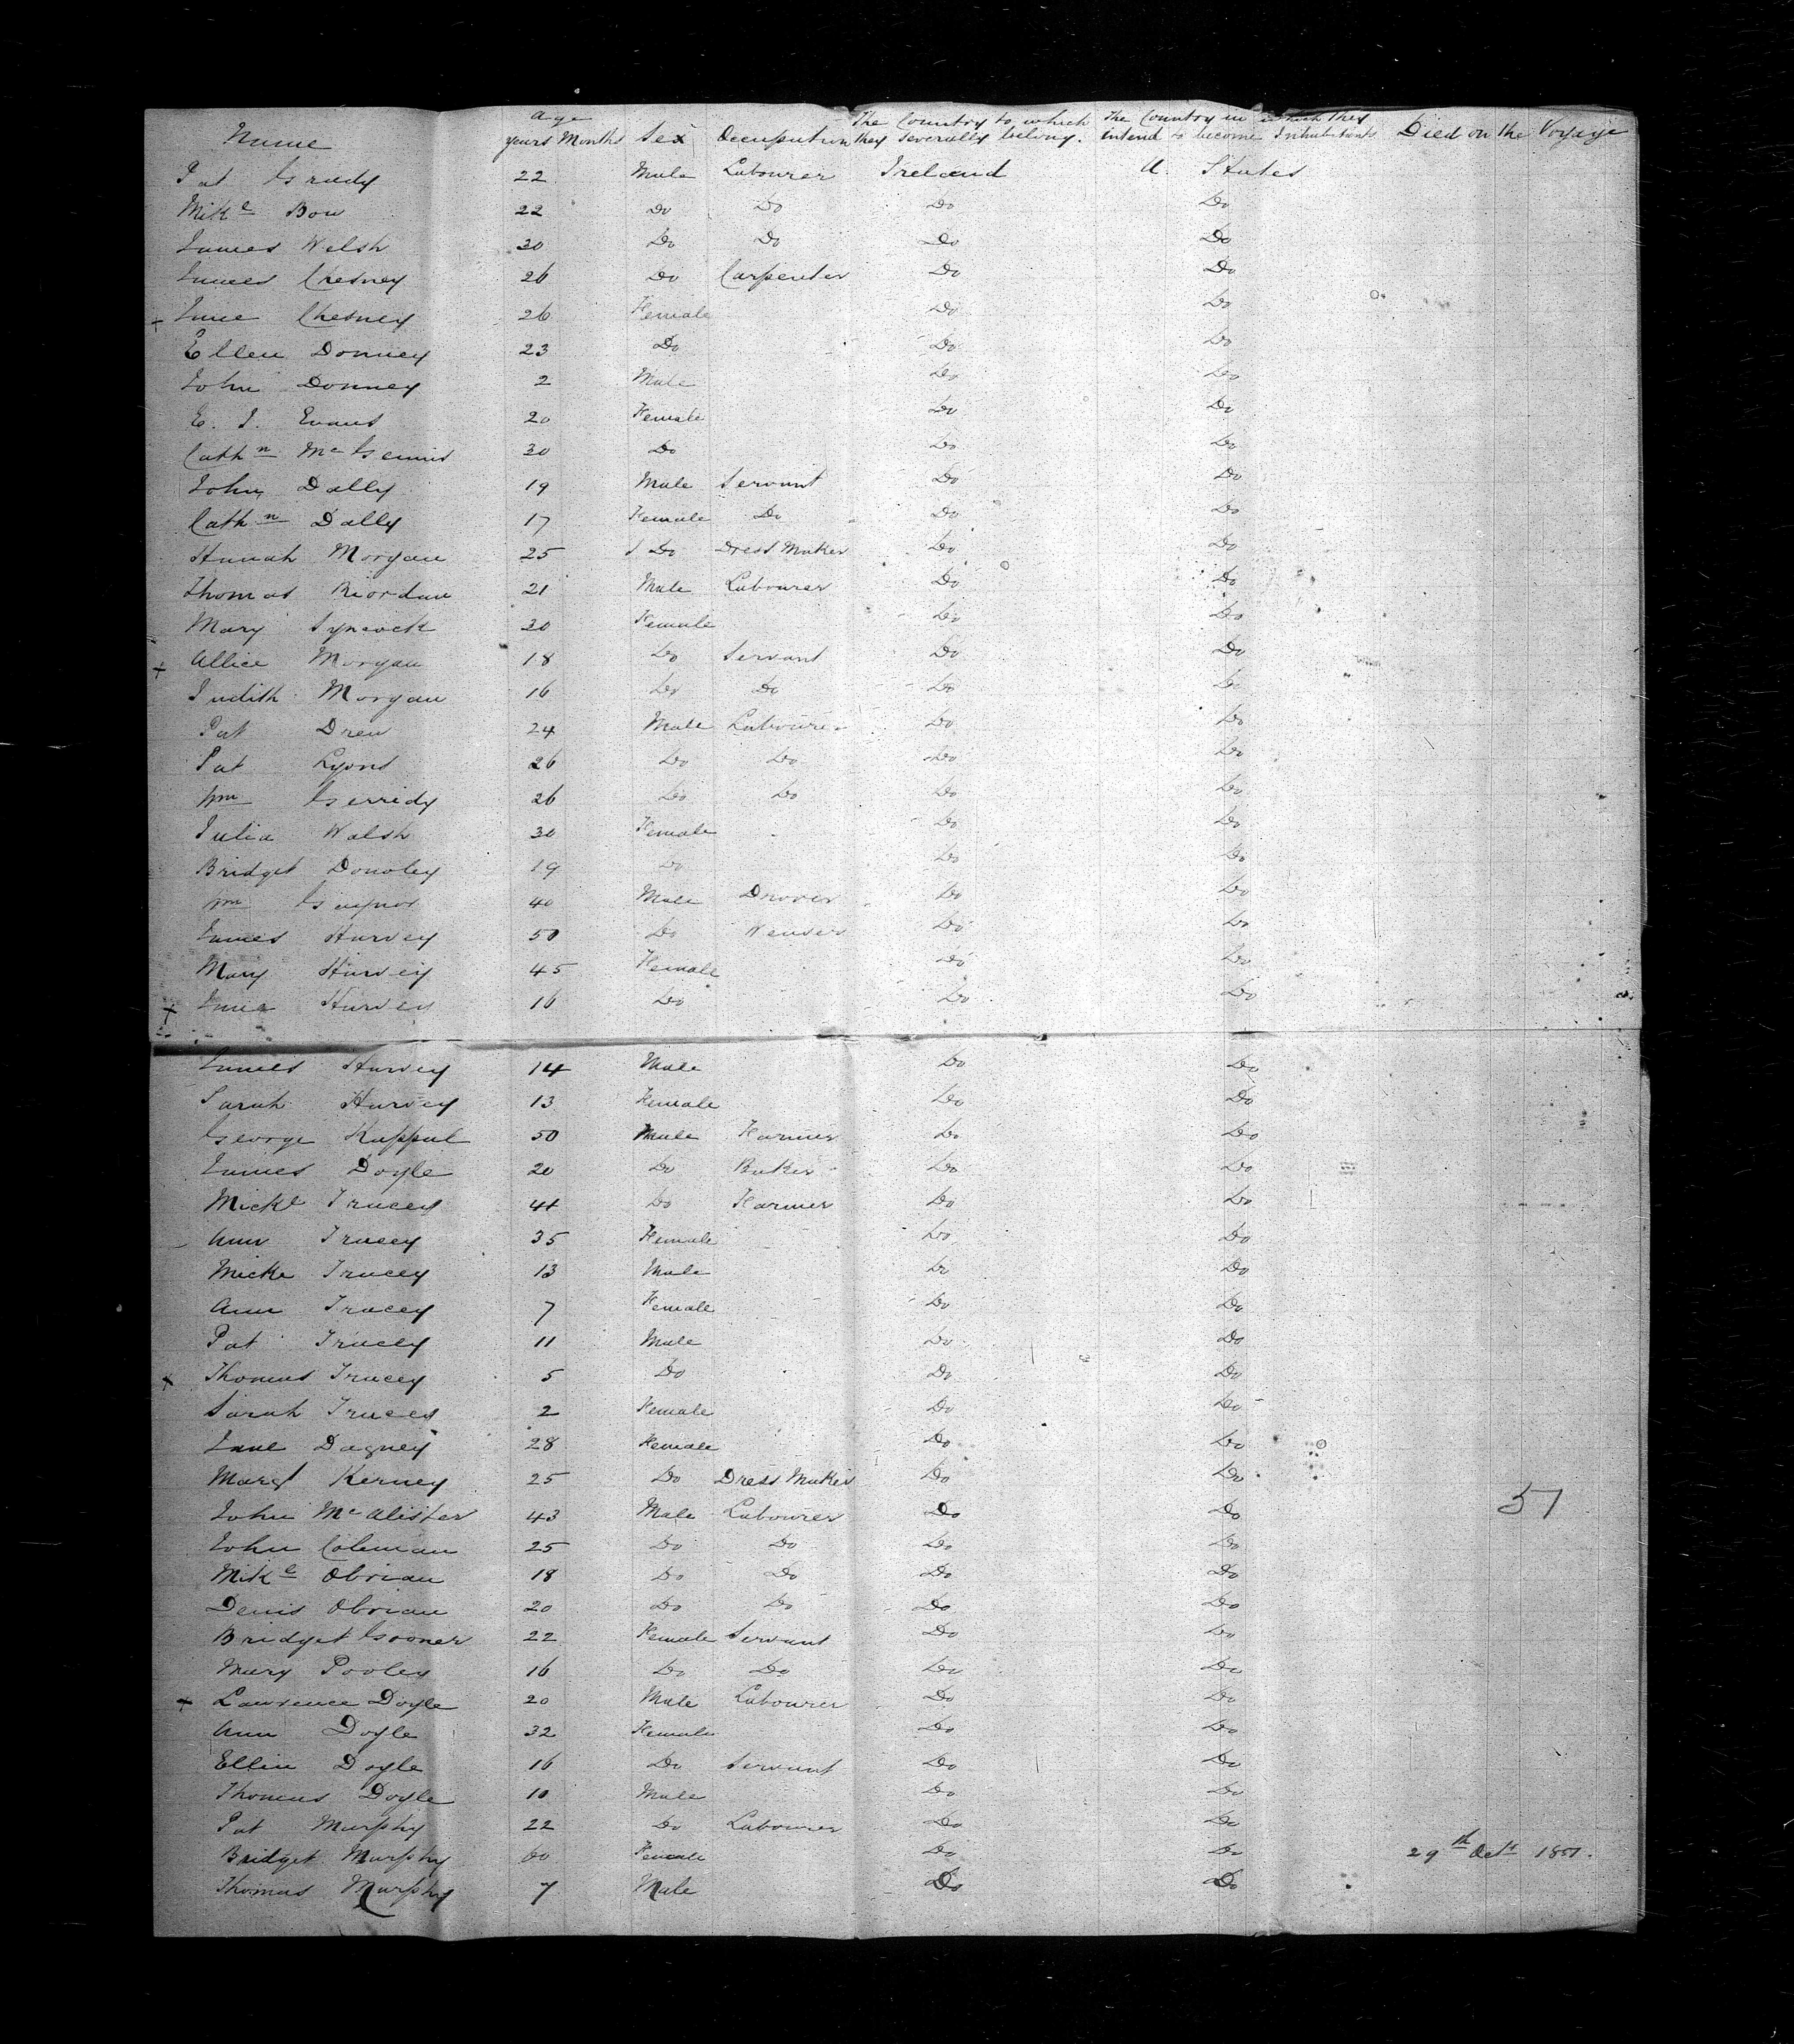 Name Age years Months Sex Occupation The Country to which they severally belong. The Country in which they intend to become Inhabitants Died on the Voyage
Pat Grady 22 Male Labourer Ireland U. States
Mikl Bow 22 Do Do Do Do
James Welsh 30 Do Do Do Do
James Chesney 26 Do Carpenter Do Do
+ Jane Chesney 26 Female Do Do
Ellen Donney 23 Do Do Do
John Donney 2 Male Do Do
E. J. Evans 20 Female Do Do
Cathn McGennis 30 Do Do Do
John Dally 19 Male Servant Do Do
Cathn Dally 17 Female Do Do Do
Hannah Morgan 25 Do Dress Maker Do Do
Thomas Riordan 21 Male Labourer Do Do
Mary 30 Female Do Do
+ Allice Morgan 18 Do Servant Do Do
Judith Morgan 16 Do Do Do Do
Pat Drew 24 Male Labourer Do Do
Pat Lyons 26 Do Do Do Do
Wm Gerridy 26 Do Do Do Do
Julia Walsh 30 Female Do Do
Bridget Donoley 19 Do Do Do
Wm Gaynor 40 Male Drover Do Do
James Harvey 50 Do Weaver Do Do
Mary Harvey 45 Female Do Do
+ Harvey 16 Do Do Do
James Harvey 14 Male Do Do
Sarah Harvey 13 Female Do Do
George Kuppul 50 Male Farmer Do Do
James Doyle 20 Do Baker Do Do
Mickl Tracey 44 Do Farmer Do Do
Ann Tracey 35 Female Do Do
Micke Tracey 13 Male Do Do
Ann Tracey 7 Female Do Do
Pat Tracey 11 Male Do Do
+ Thomas Tracey 5 Do Do Do
Sarah Tracey 2 Female Do Do
Jane Dagney 28 Female Do Do
Margt Kerney 25 Do Dress Maker Do Do
John McAlister 43 Male Labourer Do Do 51
John Coleman 25 Do Do Do Do
Mikl Obrian 18 Do Do Do Do
Denis Obrian 20 Do Do Do Do
Bridget Gooner 22 Female Servant Do Do
Mary Pooley 16 Do Do Do Do
+ Lawrence Doyle 20 Male Labourer Do Do
Ann Doyle 32 Female Do Do
Ellin Doyle 16 Do Servant Do Do
Thomas Doyle 10 Male Do Do
Pat Murphy 22 Do Labourer Do Do
Bridget Murphy 60 Female Do Do 29th Octr 1851.
Thomas Murphy 7 Male Do Do